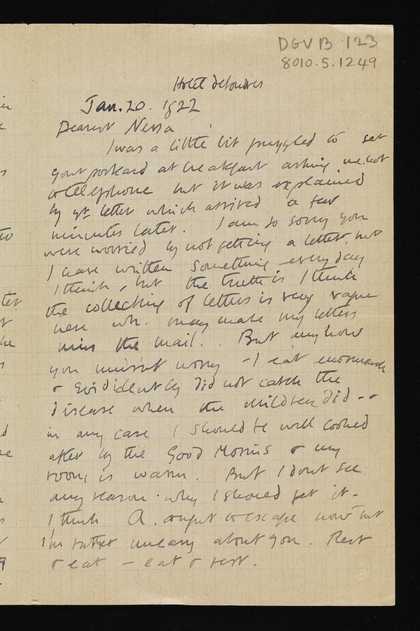 DGVB 123
8010.5.1249
Hotel de Londres
Jan. 20. 1922
Dearest Nessa
I was a little bit puzzled to get
your postcard at breakfast asking me not
to telephone but it was explained
by yr. letter which arrived a few
minutes later. I am so sorry you
were worried by not getting a letter, but
I have written something every day
I think, but the truth is I think
the collecting of letters is very vague
here wh. may make my letters
miss the mail. But anyhow
you mustnt worry - I eat enormously
& evidently did not catch the
disease when the children did --
in any case I should be well looked
after by the Good Morris & my
room is warm. But I dont see
any reason why I should get it.
I think A. ought to escape now but
I'm rather uneasy about you. Rest
& eat - eat & rest.